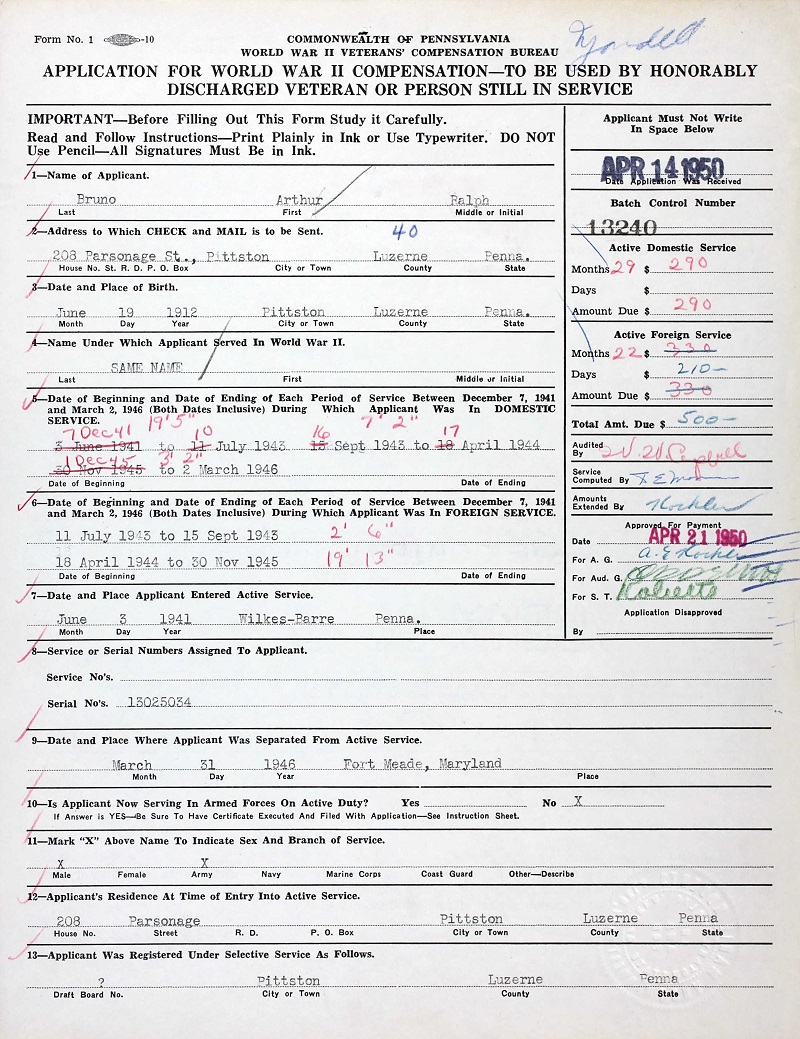 Form No. 1 -10
COMMONWEALTH OF PENNSYLVANIA
WORLD WAR II VETERANS' COMPENSATION BUREAU
APPLICATION FOR WORLD WAR II COMPENSATION—TO BE USED BY HONORABLY
DISCHARGED VETERAN OR PERSON STILL IN SERVICE
IMPORTANT—Before Filling Out This Form Study it Carefully.
Read and Follow Instructions—Print Plainly in Ink or Use Typewriter. DO NOT
Use Pencil—All Signatures Must Be in Ink.
Applicant Must Not Write
In Space Below
APR 14 1950
Date Application Was Received
Batch Control Number
13240
Active Domestic Service
Months 29 $ 290
Days $
Amount Due $ 290
Active Foreign Service
Months 22 $ 330
Days $ 210-
Amount Due $ 330
Total Amt. Due $ 500-
Audited
By
Service
Computed By
Amounts
Extended By
Approved For Payment
Date APR 21 1950
For A. G.
For Aud. G.
For S. T.
Application Disapproved
By
1—Name of Applicant.
Bruno Arthur Ralph
Last First Middle or Initial
2—Address to Which CHECK and MAIL is to be Sent. 40
208 Parsonage St., Pittston Luzerne Penna.
House No. St. R. D. P. O. Box City or Town County State
3—Date and Place of Birth.
June 19 1912 Pittston Luzerne Penna.
Month Day Year City or Town County State
4—Name Under Which Applicant Served In World War II.
SAME NAME
Last First Middle or Initial
5—Date of Beginning and Date of Ending of Each Period of Service Between December 7, 1941
and March 2, 1946 (Both Dates Inclusive) During Which Applicant Was In DOMESTIC
SERVICE. 19' 5" 7' 2"
7 Dec 41 10 16 17
3 June 1941 to 11 July 1943 15 Sept 1943 to 18 April 1944
1 Dec 45 3' 2"
30 Nov 1945 to 2 March 1946
Date of Beginning Date of Ending
6—Date of Beginning and Date of Ending of Each Period of Service Between December 7, 1941
and March 2, 1946 (Both Dates Inclusive) During Which Applicant Was In FOREIGN SERVICE.
11 July 1943 to 15 Sept 1943 2' 6"
18 April 1944 to 30 Nov 1945 19' 13"
Date of Beginning Date of Ending
7—Date and Place Applicant Entered Active Service.
June 3 1941 Wilkes-Barre Penna.
Month Day Year Place
8—Service or Serial Numbers Assigned To Applicant.
Service No's.
Serial No's. 13025034
9—Date and Place Where Applicant Was Separated From Active Service.
March 31 1946 Fort Meade, Maryland
Month Day Year Place
10—Is Applicant Now Serving In Armed Forces On Active Duty? Yes No X
If Answer is YES—Be Sure To Have Certificate Executed And Filed With Application—See Instruction Sheet.
11—Mark "X" Above Name To Indicate Sex And Branch of Service.
X X
Male Female Army Navy Marine Corps Coast Guard Other—Describe
12—Applicant's Residence At Time of Entry Into Active Service.
208 Parsonage Pittston Luzerne Penna
House No. Street R. D. P. O. Box City or Town County State
13—Applicant Was Registered Under Selective Service As Follows.
? Pittston Luzerne Penna
Draft Board No. City or Town County State